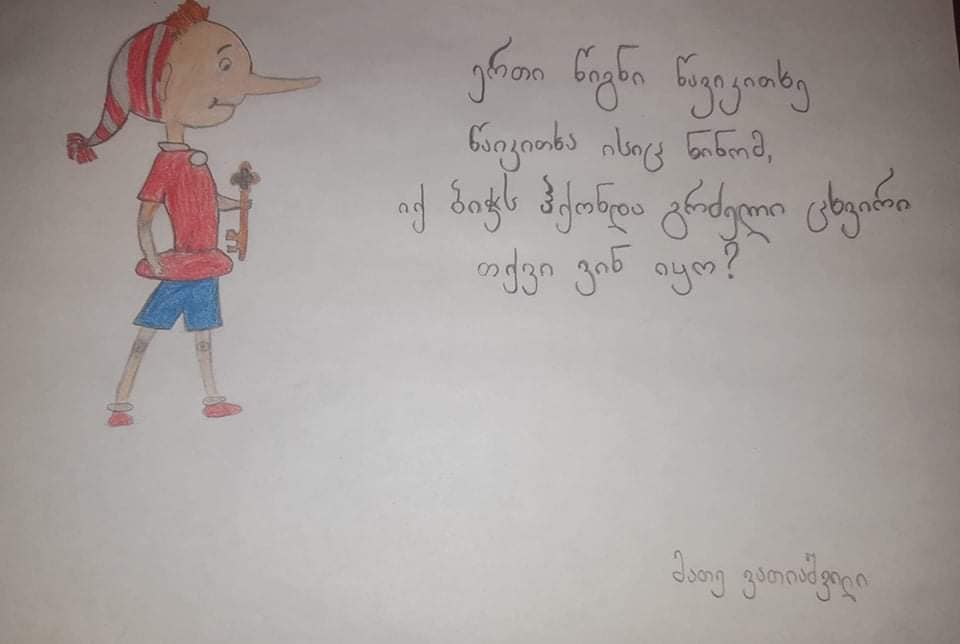 ერთი წიგნი წავიკითხე
წაიკითხა ისიც ნინომ,
იქ ბიჭს ჰქონდა გრძელი ცხვირი
თქვი ვინ იყო?
მათე ვათიაშვილი